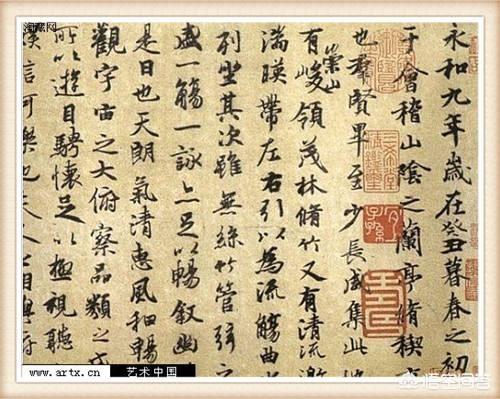 永和九年歲在癸丑暮春之初
于會稽山陰之蘭亭脩稧
也羣賢畢至少長咸集此
有崇山峻領茂林脩竹又有清流激
湍暎帶左右引以為流觴曲
列坐其次雖無絲竹管弦之
盛一觴一詠亦足以暢敘幽
是日也天朗氣清惠風和暢
觀宇宙之大俯察品類之
所以遊目騁懷足以極視聽
信可樂也夫人之相與俯
www.artx.cn
艺术中国
悟空问答